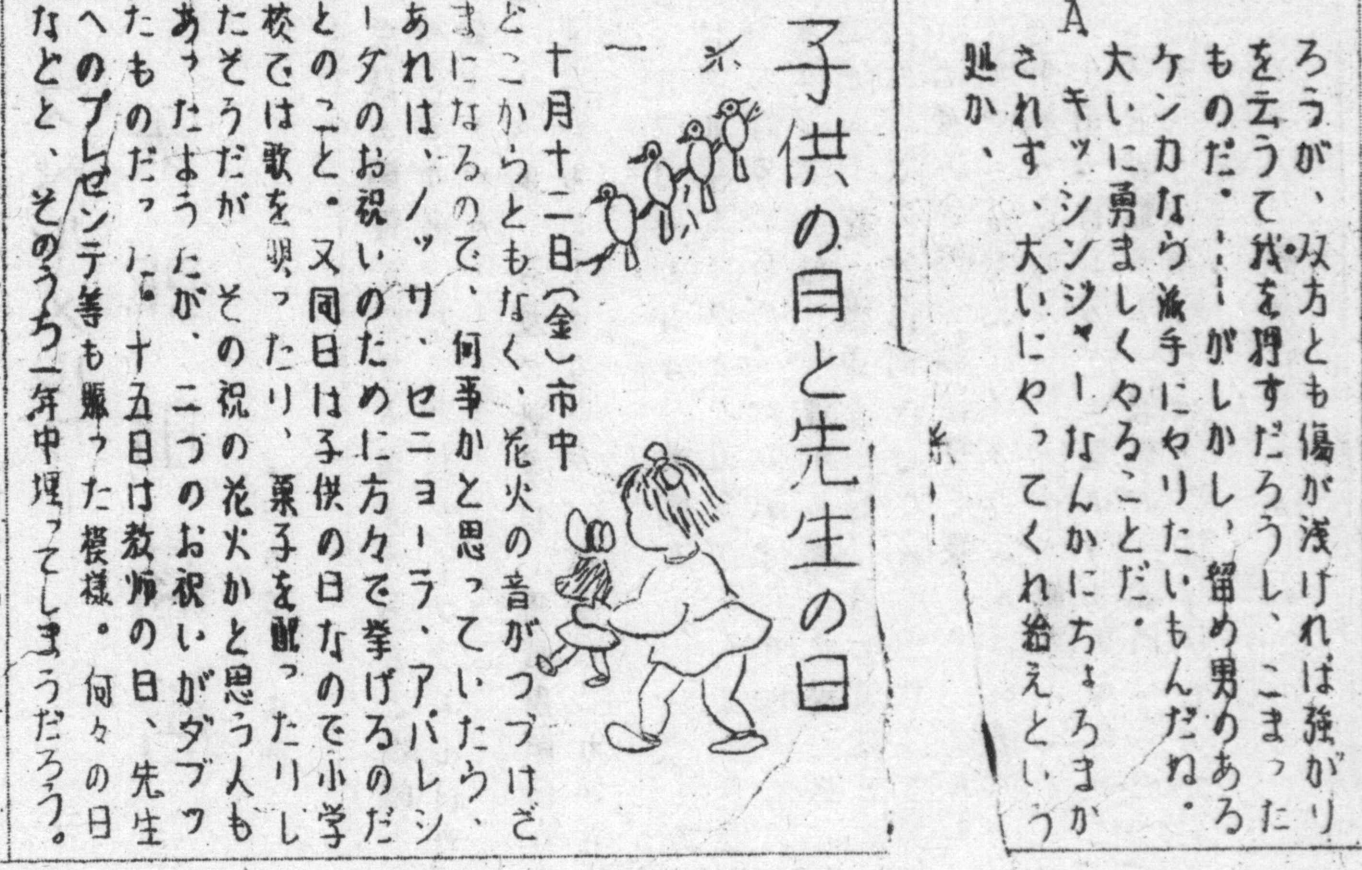 ろうが、双方とも傷が浅ければ強がり
を云うて我を押すだろうし、こまった
ものだ。……がしかし、留め男のある
ケンカなら派手にやりたいもんだね。
大いに勇ましくやることだ。
A キッシンジャーなんかにちょろまか
されず、大いにやってくれ給えという
処か、
子供の日と先生の日
十月十二日(金)市中
どこからともなく、花火の音がつづけざ
まになるので、何事かと思っていたら、
あれは、ノッサ、セニョーラ、アパレシ
ーダのお祝いのために方々で挙げるのだ
とのこと。又同日は子供の日なので小学
校では歌を唄ったり、菓子を配ったりし
たそうだが、その祝の花火かと思う人も
あったようだが、二つのお祝いがダブッ
たものだった。十五日は教師の日、先生
へのプレゼンテ等も賑った模様。何々の日
などと、そのうち一年中埋ってしまうだろう。